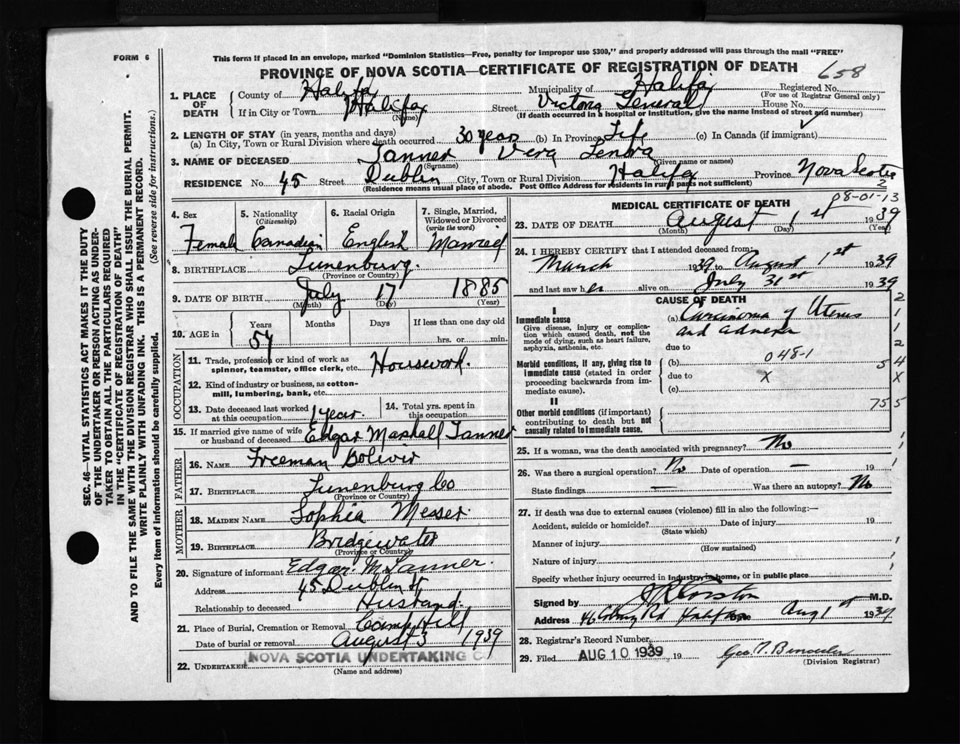 FORM 6
This form if placed in an envelope, marked "Dominion Statistics—Free, penalty for improper use $300," and properly addressed will pass through the mail "FREE"
PROVINCE OF NOVA SCOTIA—CERTIFICATE OF REGISTRATION OF DEATH
658
1. PLACE OF DEATH
County of Halifax Municipality of Halifax Registered No.
(For use of Registrar General only)
If in City or Town Halifax Street Victoria General House No.
(Name) (If death occurred in a hospital or institution, give the name instead of street and number)
2. LENGTH OF STAY (in years, months and days)
(a) In City, Town or Rural Division where death occurred 30 years (b) In Province Life (c) In Canada (if immigrant)
3. NAME OF DECEASED Tanner Vera
(Surname) (Given name or names)
RESIDENCE No. 45 Street Dublin City, Town or Rural Division Halifax Province Nova Scotia
(Residence means usual place of abode. Post Office Address for residents in rural parts not sufficient)
4. Sex
Female
5. Nationality
(Citizenship)
Canadian
6. Racial Origin
English
7. Single, Married, Widowed or Divorced
(write the word)
Married
8. BIRTHPLACE Lunenburg.
(Province or Country)
9. DATE OF BIRTH July 17 1885
(Month) (Day) (Year)
10. AGE in
Years Months Days If less than one day old
54 hrs. or min.
OCCUPATION
11. Trade, profession or kind of work as
spinner, teamster, office clerk, etc. Housework.
12. Kind of industry or business, as cotton-
mill, lumbering, bank, etc.
13. Date deceased last worked
at this occupation 1 year.
14. Total yrs. spent in
this occupation
15. If married give name of wife
or husband of deceased Edgar Marshall Tanner
FATHER
16. Name Freeman Boliver
17. Birthplace Lunenburg Co
(Province or Country)
MOTHER
18. Maiden Name Sophia Messer
19. Birthplace Bridgewater
(Province or Country)
20. Signature of informant Edgar. M. Tanner.
Address 45 Dublin St
Relationship to deceased Husband.
21. Place of Burial, Cremation or Removal Camp Hill
Date of burial or removal August 3 1939
22. UNDERTAKER NOVA SCOTIA UNDERTAKING CO
(Name and address)
MEDICAL CERTIFICATE OF DEATH
P8-01-13
2
23. DATE OF DEATH August 1st 1939
(Month) (Day) (Year)
24. I HEREBY CERTIFY that I attended deceased from:
March 1939 to August 1st 1939
and last saw her alive on July 31st 1939
CAUSE OF DEATH
I
Immediate cause
Give disease, injury or complication which caused death, not the mode of dying, such as heart failure, asphyxia, asthenia, etc.
(a) Carcinoma of Uterus
and adnexa
due to
Morbid conditions, if any, giving rise to immediate cause (stated in order proceeding backwards from immediate cause).
(b) 048-1
due to x
(c)
II
Other morbid conditions (if important) contributing to death but not causally related to immediate cause.
2
1
2
5 4
x
75 5
25. If a woman, was the death associated with pregnancy? No
26. Was there a surgical operation? No Date of operation — 19
State findings — Was there an autopsy? No
27. If death was due to external causes (violence) fill in also the following:—
Accident, suicide or homicide? Date of injury 19
(State which)
Manner of injury
(How sustained)
Nature of injury
Specify whether injury occurred in industry, in home, or in public place
Signed by M.D.
Address 46 Rd Halifax Date Aug 1st 1939
28. Registrar's Record Number
29. Filed AUG 10 1939, 19 Geo
(Division Registrar)
SEC. 46—VITAL STATISTICS ACT MAKES IT THE DUTY
OF THE UNDERTAKER OR PERSON ACTING AS UNDER-
TAKER TO OBTAIN ALL THE PARTICULARS REQUIRED
IN THE "CERTIFICATE OF REGISTRATION OF DEATH"
AND TO FILE THE SAME WITH THE DIVISION REGISTRAR WHO SHALL ISSUE THE BURIAL PERMIT.
WRITE PLAINLY WITH UNFADING INK. THIS IS A PERMANENT RECORD.
Every item of information should be carefully supplied. (See reverse side for instructions.)